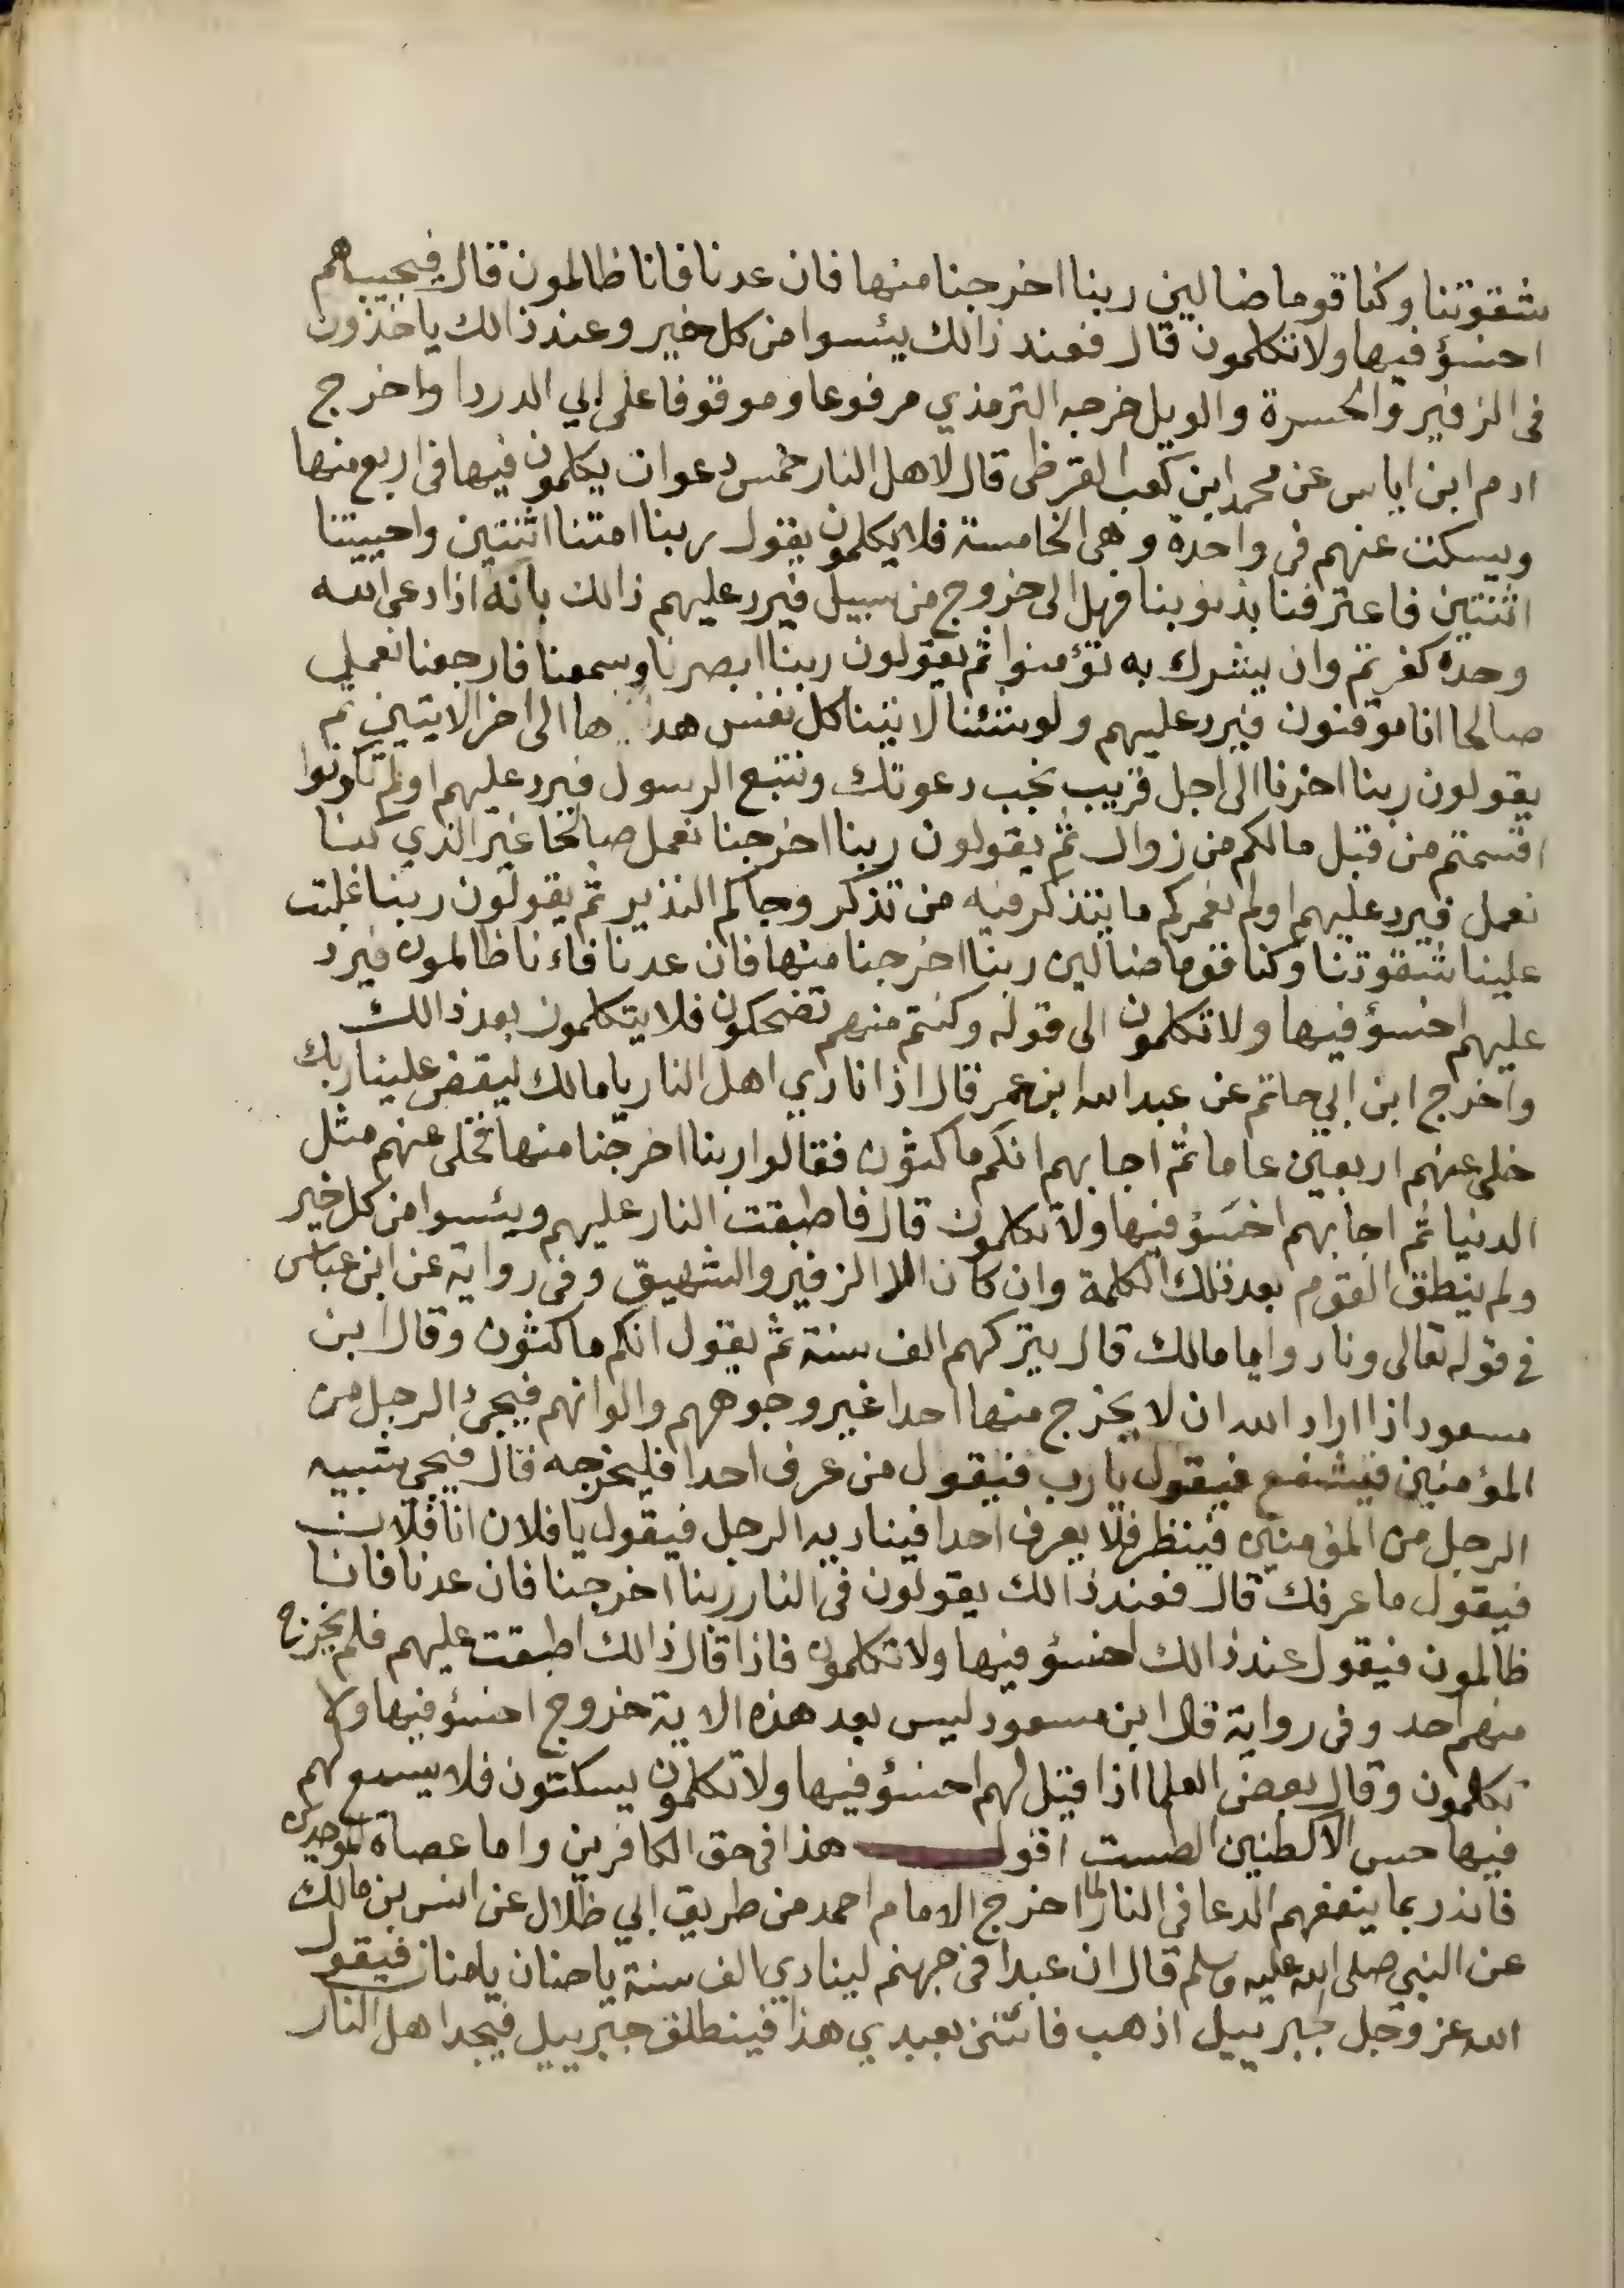 شقوتنا وكنا قوما ضالين ربنا اخرجنا منها فان عدنا فانا ظالمون قال فيجيبهم
اخسؤ فيها ولا تكلمون قال فعند ذالك يئسوا من كل خير وعند ذالك ياخذون
فى الزفير والحسرة والويل خرجه الترمذي مرفوعا وموقوفا على ابي الدردا واخرج
ادم ابن اياس عن محمد ابن كعب القرظى قال لاهل النار خمس دعوات يكلمون فيها فى اربع منها
ويسكت عنهم فى واحدة وهى الخامسة فلا يكلمون يقول ربنا امتنا اثنتين واحييتنا
اثنتين فاعترفنا بذنوبنا فهل الى خروج من سبيل فيرد عليهم ذالك بانه اذا دعى الله
وحده كفرتم وان يشرك به تؤمنوا ثم يقولون ربنا ابصرنا وسمعنا فارجعنا نعمل
صالحا انا موقنون فيرد عليهم ولو شئنا لاتينا كل نفس هداها الى اخر الايتين ثم
يقولون ربنا اخرنا الى اجل قريب نجب دعوتك ونتبع الرسول فيرد عليهم اولم تكونوا
اقسمتم من قبل مالكم من زوال ثم يقولون ربنا اخرجنا نعمل صالحا غير الذي كنا
نعمل فيرد عليهم اولم نعمركم ما يتذكر فيه من تذكر وجاكم النذير ثم يقولون ربنا غلبت
علينا شقوتنا وكنا قوما ضالين ربنا اخرجنا منها فان عدنا فاءنا ظالمون فيرد
عليهم اخسؤ فيها ولا تكلمون الى قوله وكنتم منهم تضحكون فلا يتكلمون بعد ذالك
واخرج ابن ابي حاتم عن عبد الله ابن عمر قال اذا نادي اهل النار يا مالك ليقض علينا ربك
خلى عنهم اربعين عاما ثم اجابهم انكم ماكثون فقالوا ربنا اخرجنا منها تخلى عنهم مثل
الدنيا ثم اجابهم اخسؤ فيها ولا تكلمون قال فاطبقت النار عليهم ويئسوا من كل خير
ولم ينطق القوم بعد تلك الكلمة وان كان الا الزفير والشهيق وفى رواية عن ابن عباس
فى قوله تعالى ونادوا يا مالك قال يتركهم الف سنة ثم يقول انكم ماكثون وقال ابن
مسعود اذا اراد الله ان لا يخرج منها احدا غير وجوههم والوانهم فيجئ الرجل من
المؤمنين فيشفع فيقول يارب فيقول من عرف احدا فليخرجه قال فيجى شبيه
الرجل من المؤمنين فينظر فلا يعرف احدا فيناديه الرجل فيقول يا فلان انا فلان
فيقول ما عرفك قال فعند ذالك يقولون فى النار ربنا اخرجنا فان عدنا فانا
ظالمون فيقول عند ذالك اخسؤ فيها ولا تكلمون فاذا قال ذالك اطبقت عليهم فلم يخرج
منهم احد وفى رواية قال ابن مسعود ليس بعد هذه الاية خروج اخسؤ فيها ولا
تكلمون وقال بعض العلما اذا قيل لهم اخسؤ فيها ولا تكلمون يسكتون فلا يسمع لهم
فيها حس الا كطنين الطست اقول هذا فى حق الكافرين واما عصاة الموحدين
فانه ربما ينفعهم الدعا فى النار لما اخرج الامام احمد من طريق ابي ظلال عن انس بن مالك
عن النبي صلى الله عليه وسلم قال ان عبدا فى جهنم لينادي الف سنة يا حنان يا منان فيقول
الله عز وجل لجبرييل اذهب فائتنى بعبدي هذا فينطلق جبرييل فيجد اهل النار